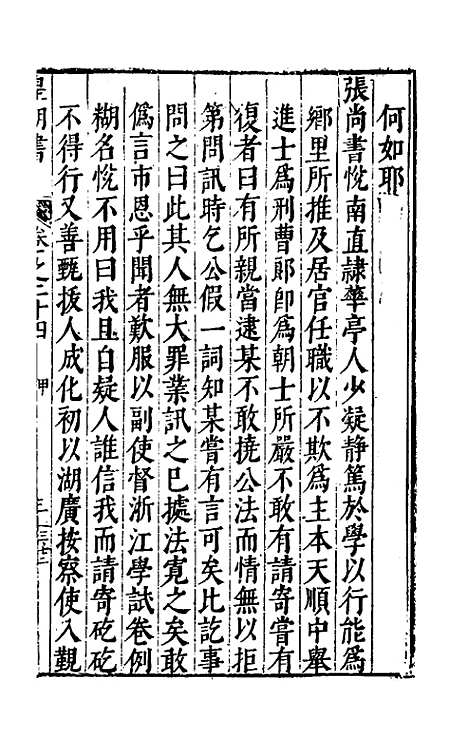 何如耶
張尚書悅南直隸華亭人少疑靜篤於學以行能爲
鄉里所推及居官任職以不欺爲主本天順中舉
進士爲刑曹郎卽爲朝士所嚴不敢有請寄嘗有
復者曰有所親當逮某不敢撓公法而情無以拒
第問訊時乞公假一詞知某嘗有言可矣比訖事
問之曰此其人無大罪業訊之已據法寛之矣敢
僞言市恩乎聞者歎服以副使督浙江學試卷例
糊名悅不用曰我且自疑人誰信我而請寄矻矻
不得行又善甄拔人成化初以湖廣按察使入覲
皇明書 卷之二十四